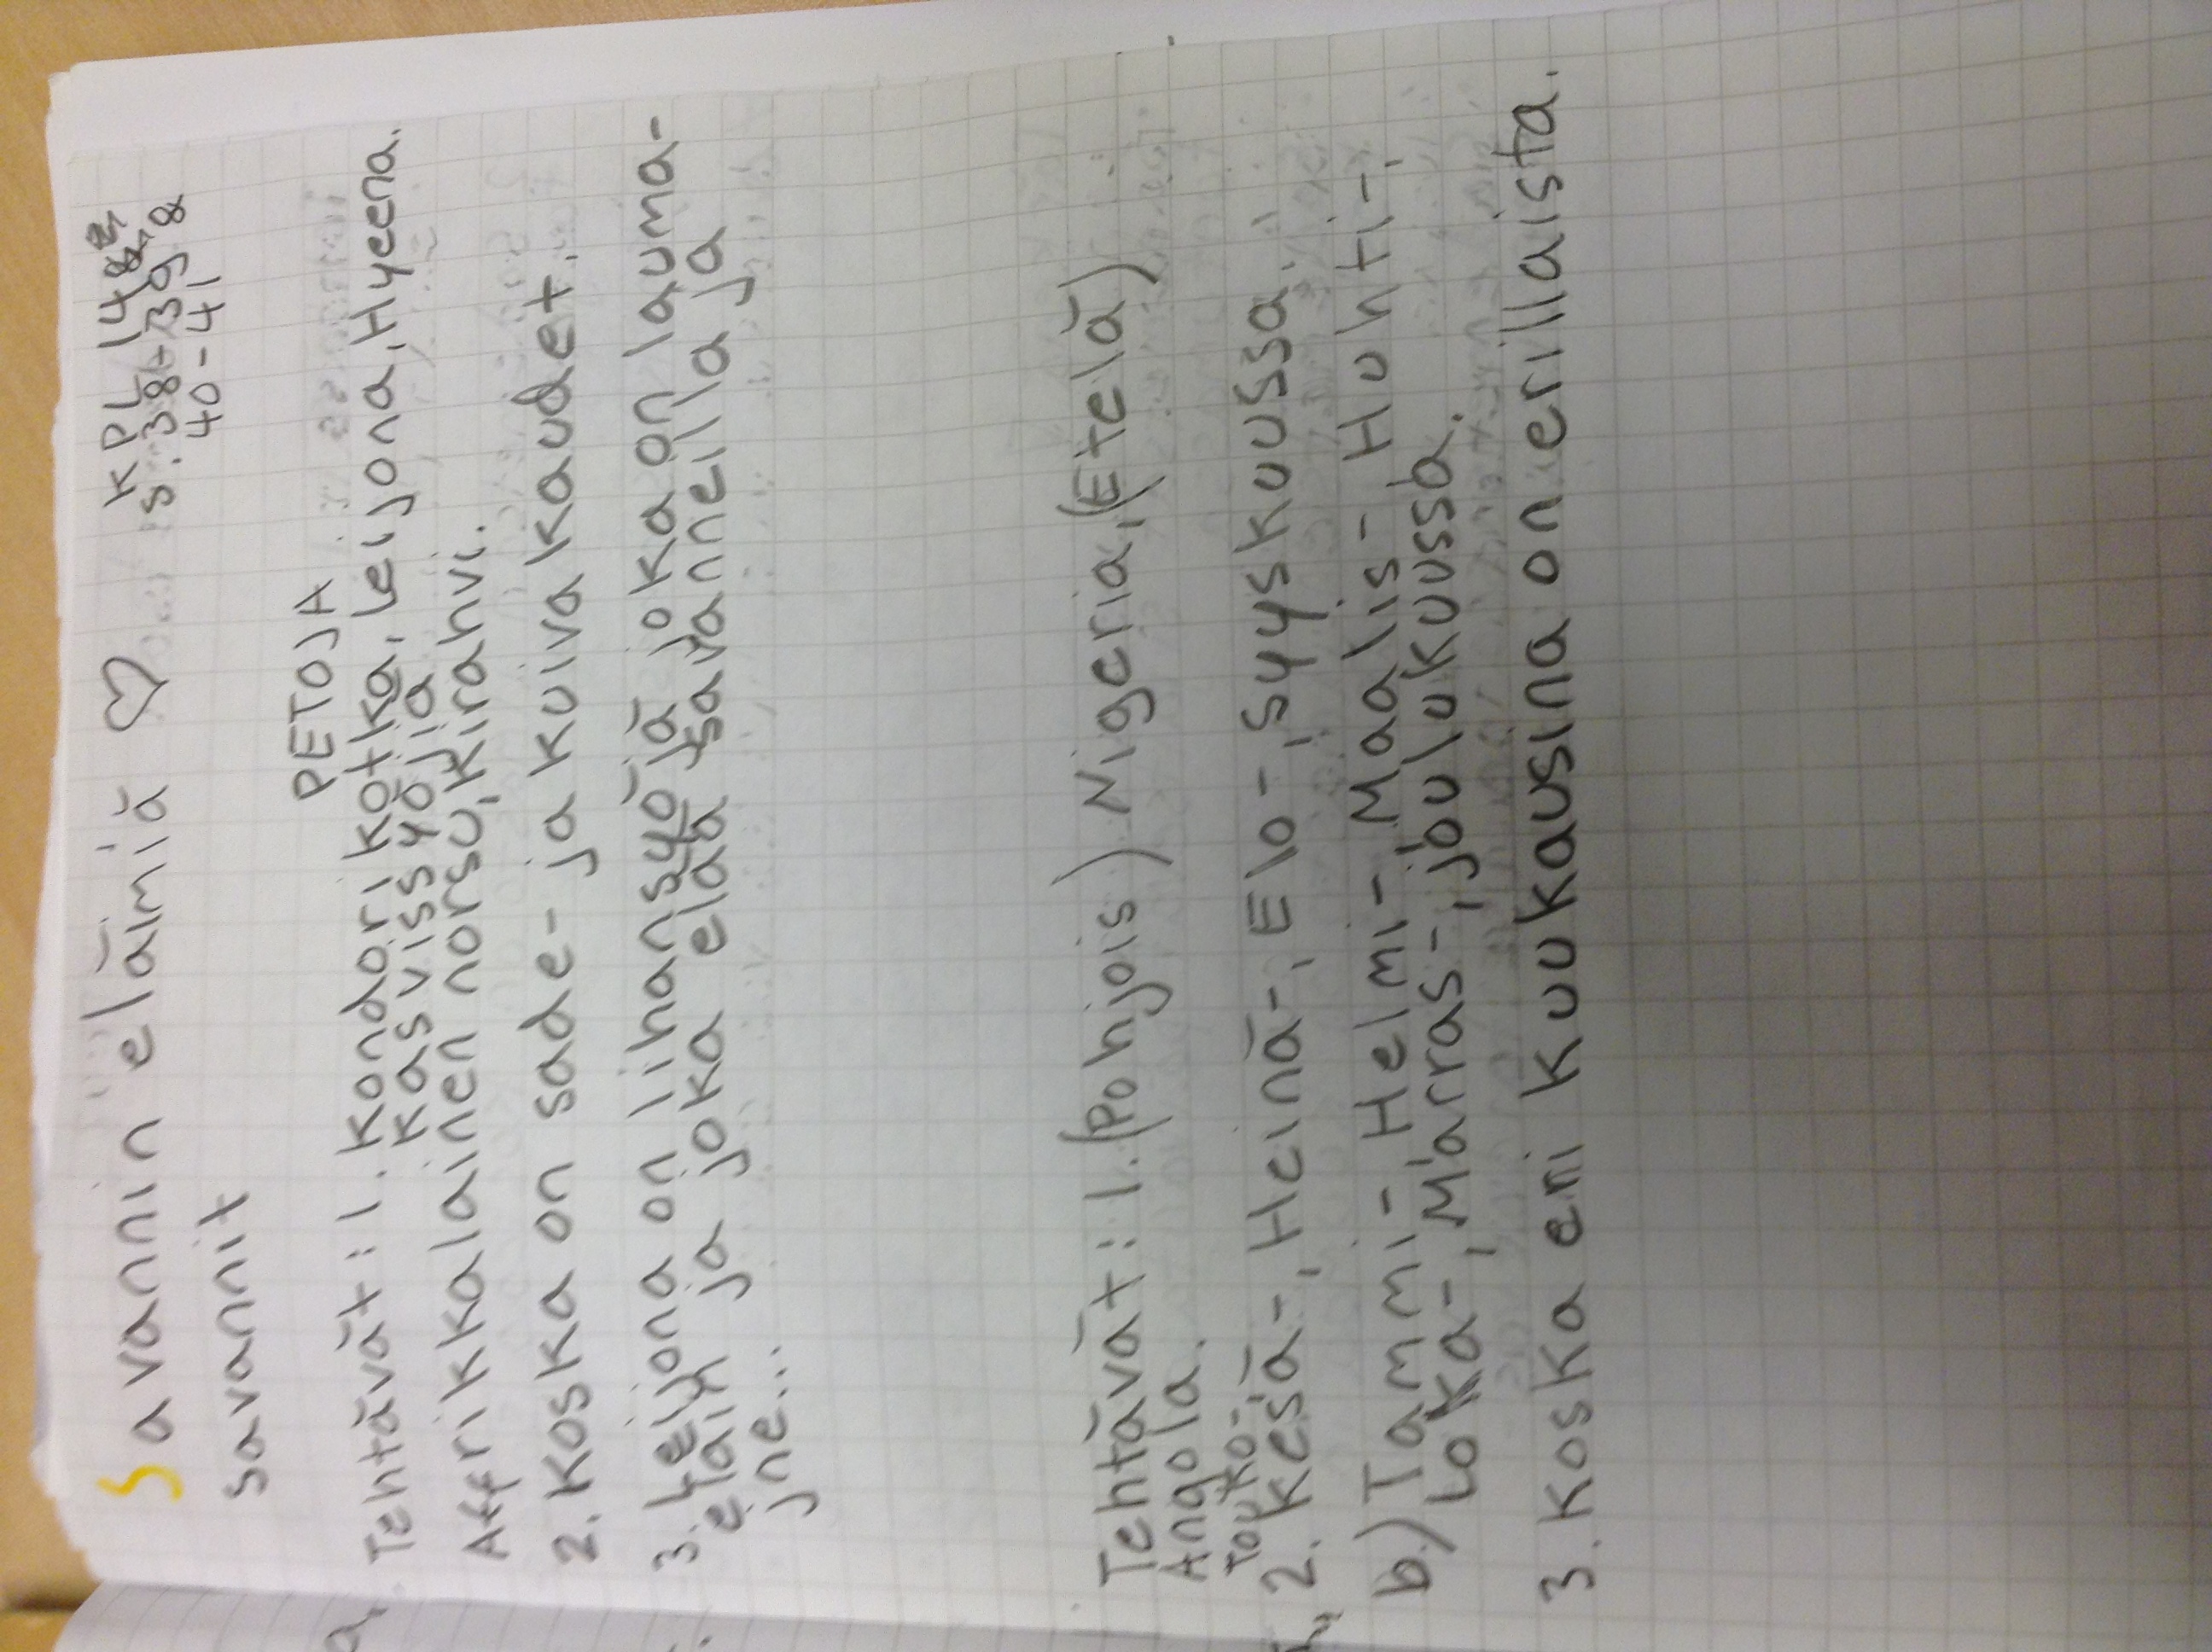 Savannin eläimiä ♡ KPL 14
s.38-39
40-41
savannit
PETOJA
Tehtävät: 1. Kondorikotka, leijona, Hyeena.
kasvissyöjiä
Affrikkalainen norsu, kirahvi.
2. Koska on sade- ja kuiva kaudet.
3. Leijona on lihansyöjä joka on lauma-
eläin ja joka elää savanneilla ja
jne...
Tehtävät: 1. (Pohjois) Nigeria, (Etelä)
Angola.
Touko-,
2. kesä-, Heinä-, Elo-, Syyskuussa.
b.) Tammi- Helmi- Maalis- Huhti-,
Loka-, Marras-, joulukuussa.
3. Koska eri kuukausina on erillaista.